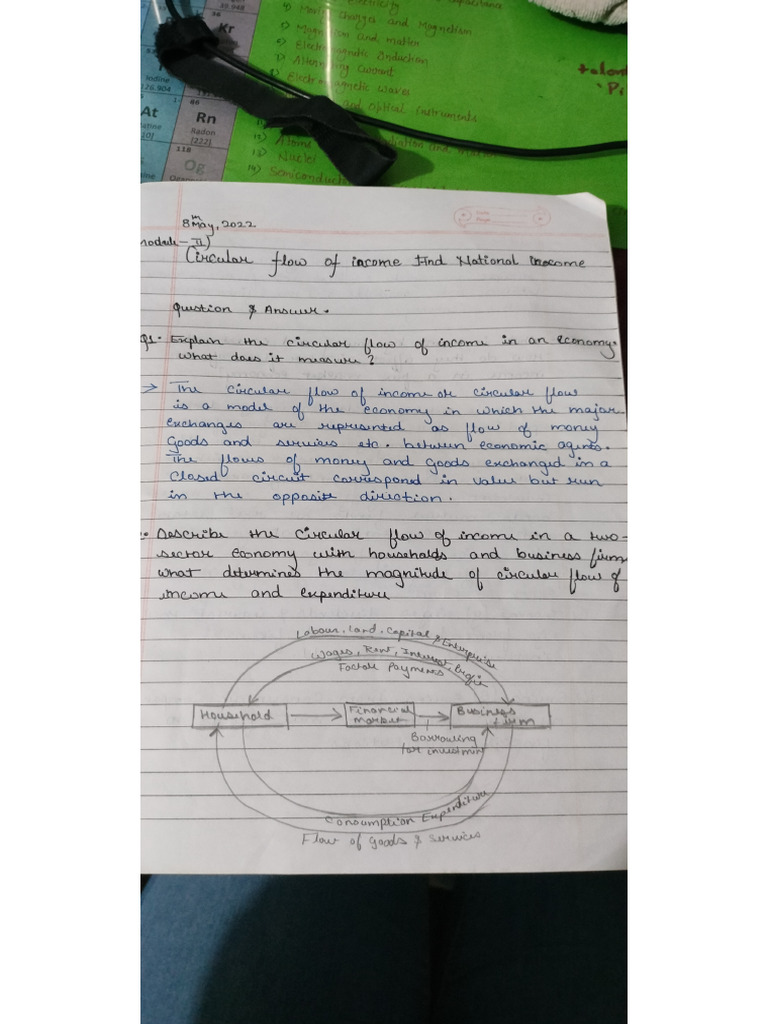 Electricity
Capacitance
4) Moving Charges and Magnetism
5) Magnetism and matter
6) Electromagnetic Induction
7) Alternating Current
8) Electromagnetic waves
and Optical instruments
12) Atoms
13) Nuclei
14) Semiconductor
36
Kr
53
Iodine
126.904
At
86
Rn
Radon
[222]
118
Og
8th May, 2022
module-II)
Circular flow of income And National income
Question & Answer.
Q1. Explain the circular flow of income in an economy.
what does it measure?
→ The circular flow of income or circular flow
is a model of the economy in which the major
exchanges are represented as flow of money
Goods and services etc. between economic agents.
The flows of money and goods exchanged in a
closed circuit correspond in value but run
in the opposite direction.
Describe the circular flow of income in a two-
sector economy with households and business firm
what determines the magnitude of circular flow of
income and expenditure
Labour, Land, Capital & Enterprise
Wages, Rent, Interest, Profit
Factor Payments
Household
Financial
market
Business
firm
Borrowing
for investment
Consumption Expenditure
Flow of goods & services